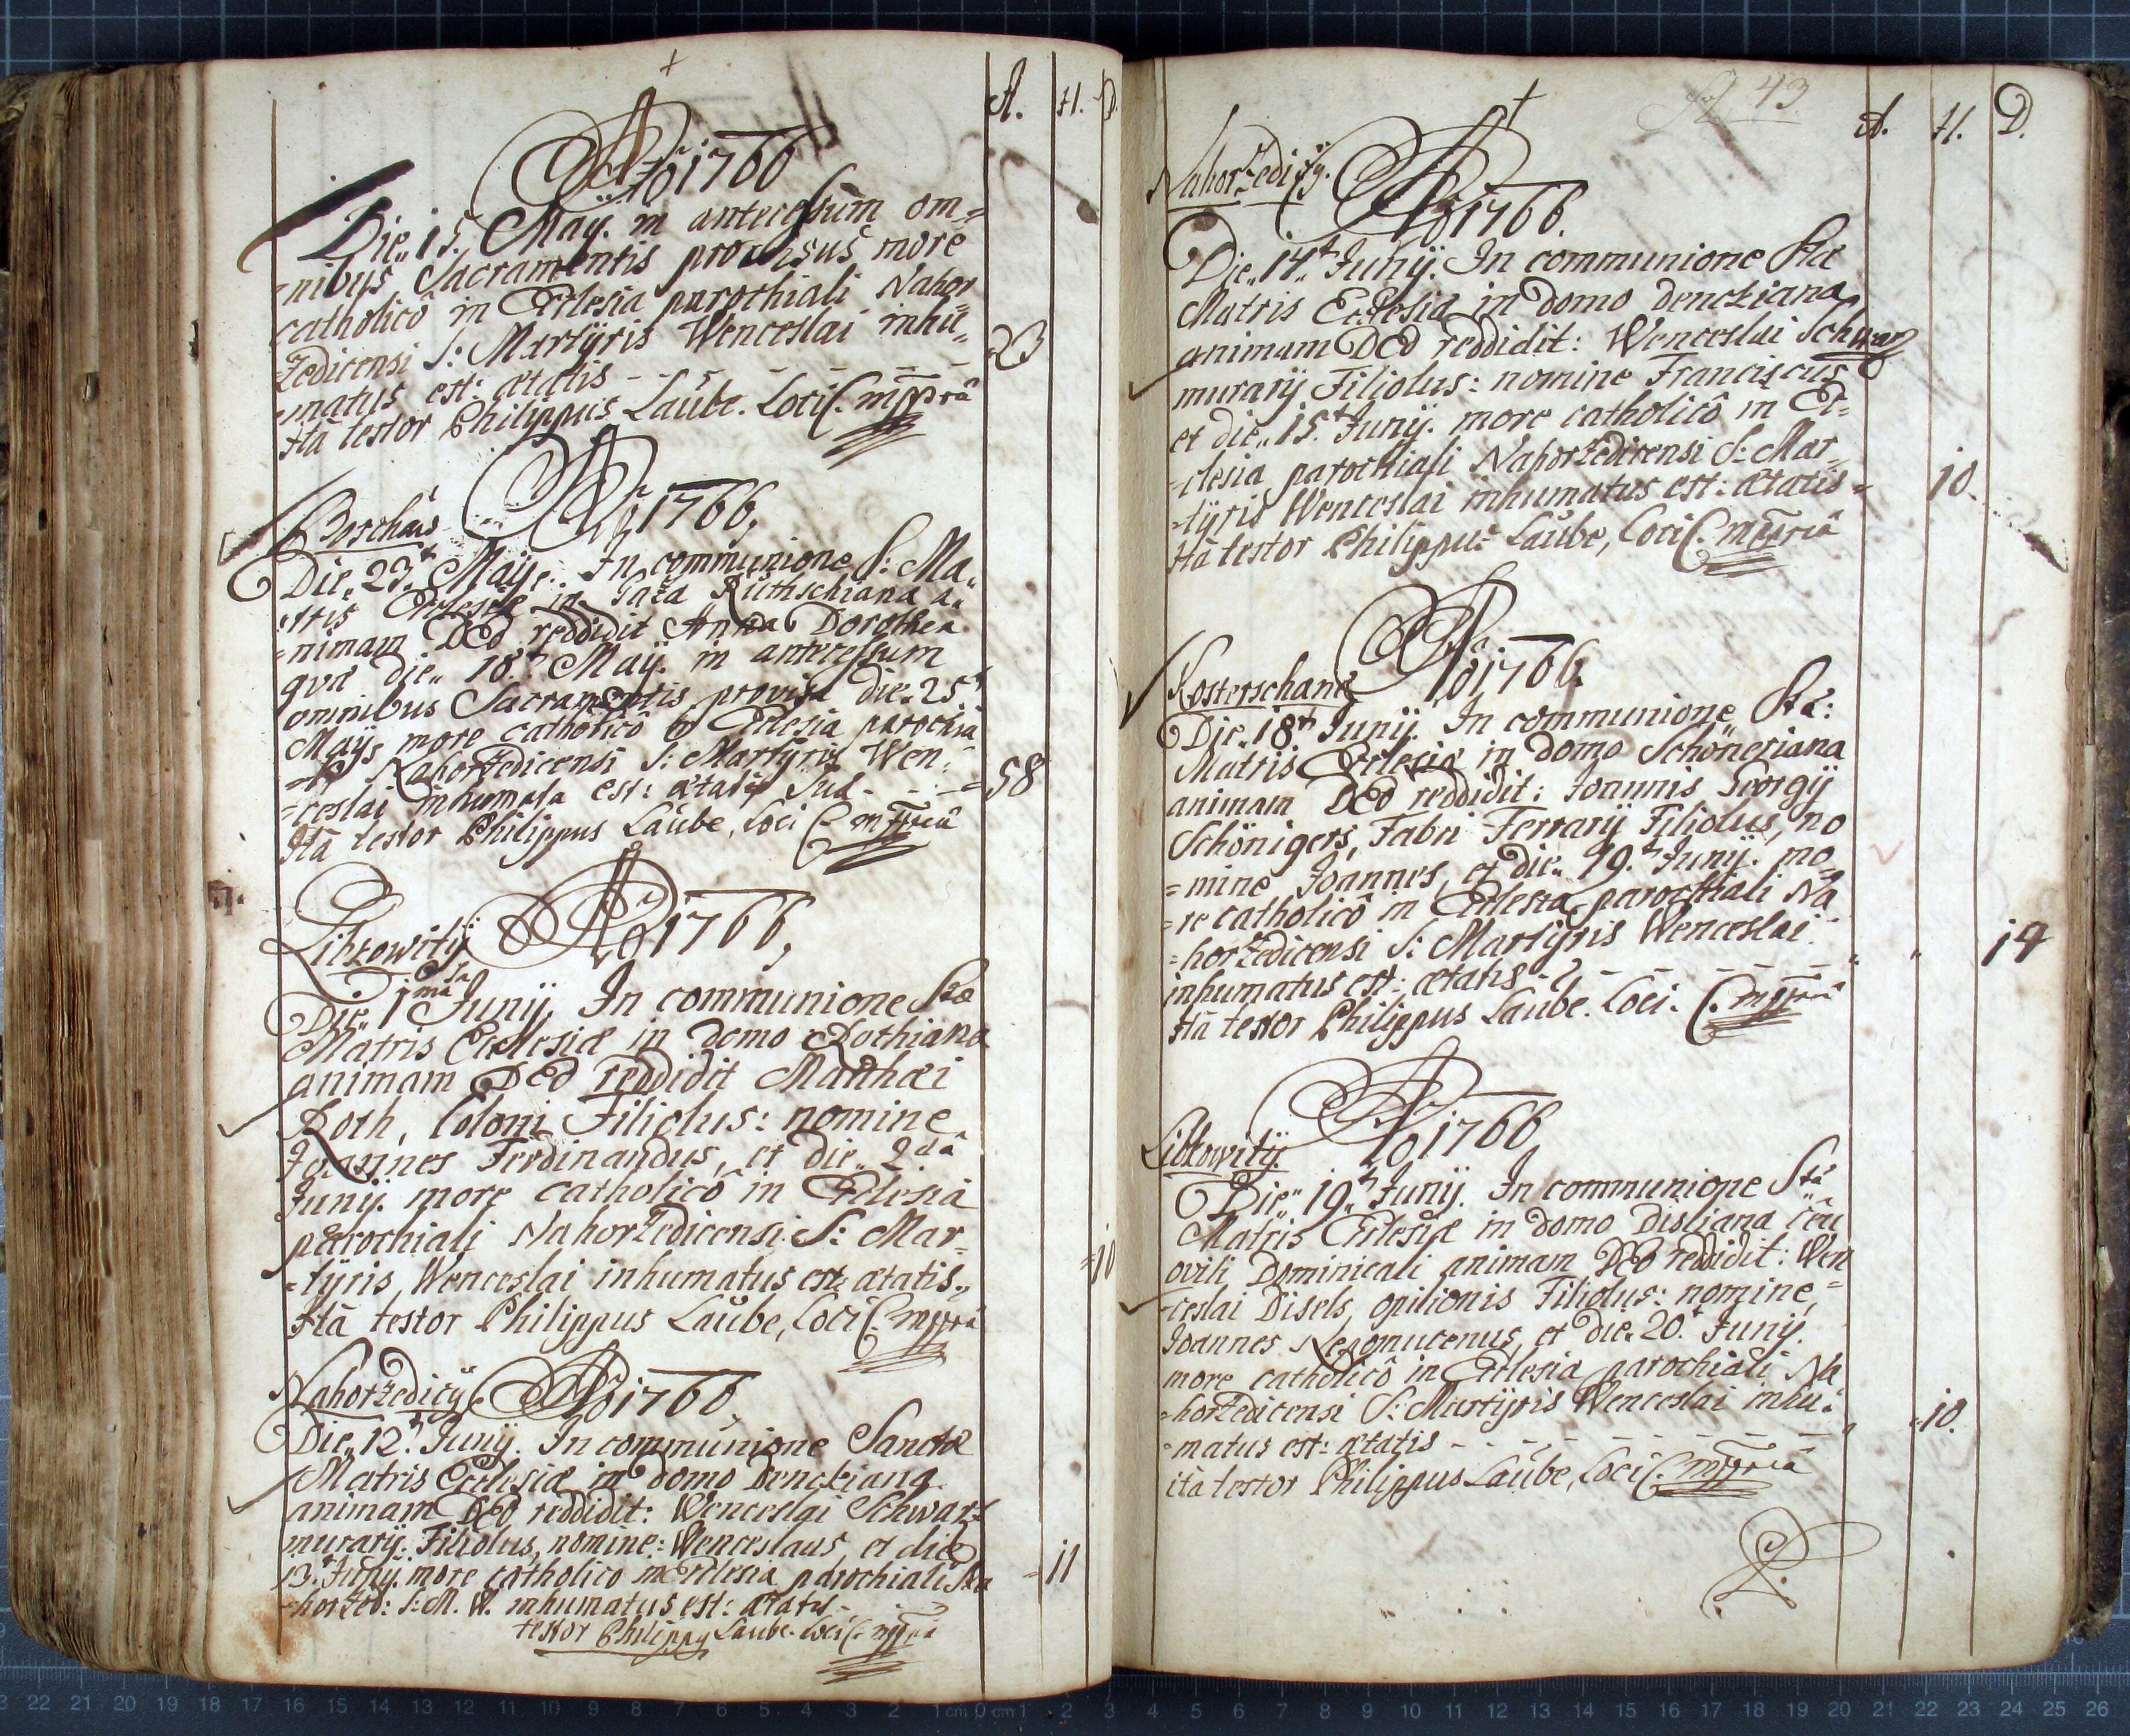 A. H. D.
Ao 1766
Die 15. Maÿ. in antecessum om=
=nibus Sacramentis provisus more
catholicô in Ecclesia parochiali Nahor
zedicensi S: Martÿris Wenceslai inhu=
=matus est: ætatis - - - - - - - 23
Ità testor Philippus Laübe. Loci C. mppriâ
Ao 1766,
Borschaü
Die 23.t Maÿ. In communione S: Ma=
=tris Ecclesiæ in Ruthschiana a=
=nimam DEO reddidit Anna Dorothea
qvæ die 18.t Maÿ. in antecessum
omnibus Sacramentis provisa die 25t
Maÿ, more catholicô Ecclesia parochia
Nahorzedicensi S: Martÿris Wen=
=ceslai inhumata est: ætatis Suæ - - - =58
Ità testor Philippus Laübe, Loci C mppriâ
Ao 1766,
Libkowitÿ
Die 1mâ Junÿ. In communione Stæ
Matris Ecclesiæ in domo Rothiana
animam DEO reddidit Matthæi
Roth, Coloni Filiolus: nomine
Joannes Ferdinandus, et die 2dâ
Junÿ. more catholicô in Ecclesia
parochiali Nahorzedicensi S: Mar=
=tÿris Wenceslai inhumatus est: ætatis =10
Ità testor Philippus Laübe, Loci C. mppriâ
Nahorzedicÿ Ao 1766
Die 12.t Junÿ. In communione Sanctæ
Matris Ecclesiæ in domo Denckiana
animam DEO reddidit: Wenceslai Schwarz
murarÿ. Filiolus, nomine: Wenceslaus, et die
13.t Junÿ. more catholico in Ecclesia parochiali Na
=horzed: S: M. W. inhumatus est: ætatis - =11
testor Philippÿ Laube. Loci C. mppria
43
A. H. D.
Nahorzedicÿ.
Ao 1766.
Die 14.t Junÿ. In communione Stæ
Matris Ecclesiæ in domo Denckiana
animam DEO reddidit: Wenceslai Schwarz
murarÿ Filiolus: nomine Franciscus
et die 15.t Junÿ. more catholicô in Ec=
=clesia parochiali Nahorzedicensi S: Mar=
=tÿris Wenceslai inhumatus est: ætatis = 10.
Ità testor Philippus Laübe, Loci C. mppriâ
Ao 1766.
Kosterschana
Die 18t Junÿ. In communione Stæ:
Matris Ecclesiæ in domo Schöneriana
animam DEO reddidit: Joannis Georgÿ
Schönigers, Fabri Ferrarÿ Filiolus, no
=mine Joannes, et die 19.t Junÿ. mo
=re catholicô in Ecclesia parochiali Na
=horzedicensi S: Martÿris Wenceslai
inhumatus est: ætatis - - - - - - 14
Ità testor Philippus Laübe. Loci. C. mppriâ
Ao 1766,
Libkowitÿ.
Die 19.t Junÿ. In communione Stæ
Matris Ecclesiæ in domo Disliana ceu
ovili Dominicali animam DEO reddidit: Wen
=ceslai Disels, opilionis Filiolus: nomine,
Joannes Nepomucenus, et die 20.t Junÿ.
more catholicô in Ecclesia parochiali Na
=horzedicensi S: Martÿris Wenceslai inhu=
=matus est: ætatis - - - - - - - =10.
ità testor Philippus Laübe, Loci C. mppriâ